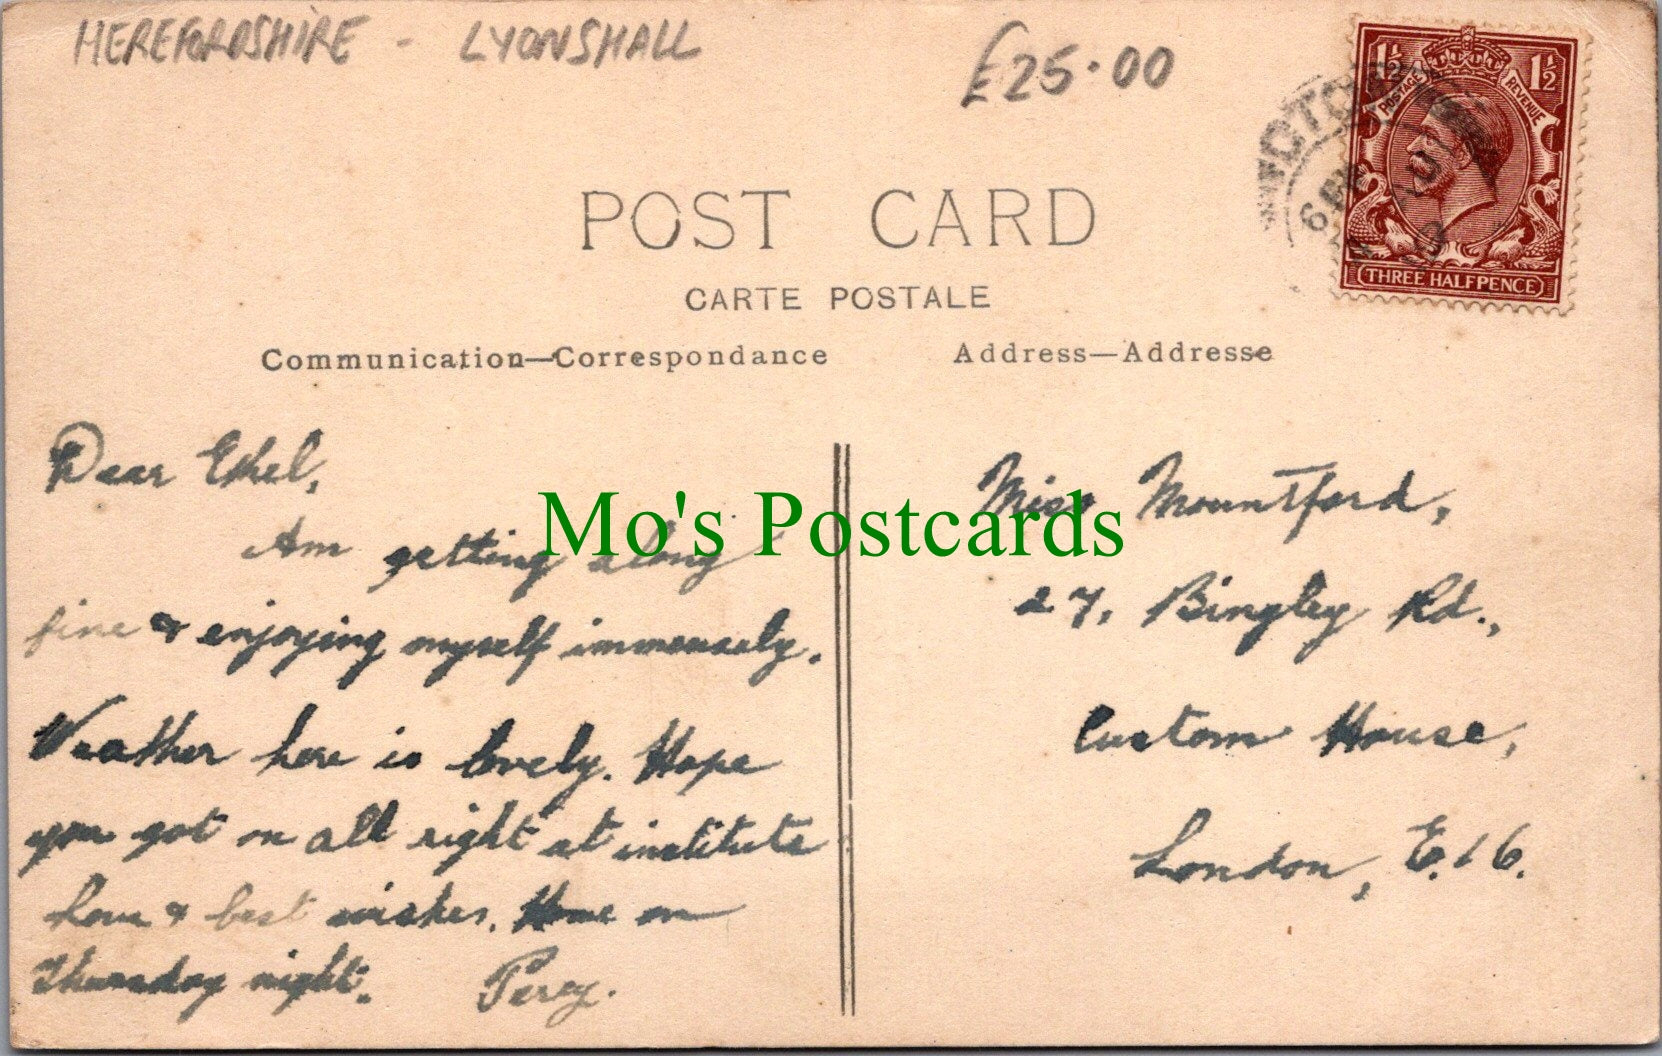 HEREFORDSHIRE - LYONSHALL
£25.00
1½ 1½
POSTAGE REVENUE
THREE HALFPENCE
POST CARD
CARTE POSTALE
Communication—Correspondance
Address—Addresse
Dear Ethel,
Am getting along
fine & enjoying myself immensely.
Weather here is lovely. Hope
you got on all right at institute
Love & best wishes. Home on
Thursday night. Percy.
Miss Mountford,
27, Bingley Rd.,
Custom House,
London, E.16.
Mo's Postcards